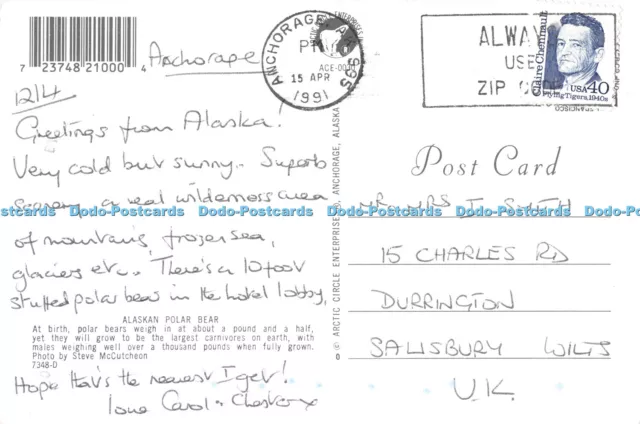 7 23748 21000 4
Anchorage
12/4
Greetings from Alaska!
Very cold but sunny.. Superb
scenery a real wilderness area
of mountains, frozen sea,
glaciers etc.. There's a 10 foot
stuffed polar bear in the hotel lobby,
ALASKAN POLAR BEAR
At birth, polar bears weigh in at about a pound and a half,
yet they will grow to be the largest carnivores on earth, with
males weighing well over a thousand pounds when fully grown.
Photo by Steve McCutcheon
7348-D
Hope that's the nearest I get!
love Carol + Chester x
© ARCTIC CIRCLE ENTERPRISES, ANCHORAGE, ALASKA
ACE-00
ANCHORAGE, AK 995
PM
15 APR
1991
ALWAYS
USE
ZIP CODE
Claire Chennault
USA 40
Flying Tigers, 1940s
Post Card
MR MRS I SMITH
15 CHARLES RD
DURRINGTON
SALISBURY WILTS
U.K.
Dodo-Postcards Dodo-Postcards Dodo-Postcards Dodo-Postcards Dodo-Postcards Dodo-Postcards